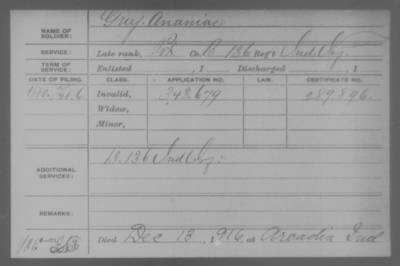 NAME OF SOLDIER: Guy, Ananias
SERVICE: Late rank, Co. 136 Reg't Ind.
TERM OF SERVICE: Enlisted , 1 Discharged , 1
DATE OF FILING. CLASS. APPLICATION NO. LAW. CERTIFICATE NO.
Invalid, 343.679 289.896.
Widow,
Minor,
ADDITIONAL SERVICES: 136 Ind
REMARKS:
Died Dec 13, 1916, at Arcadia Ind